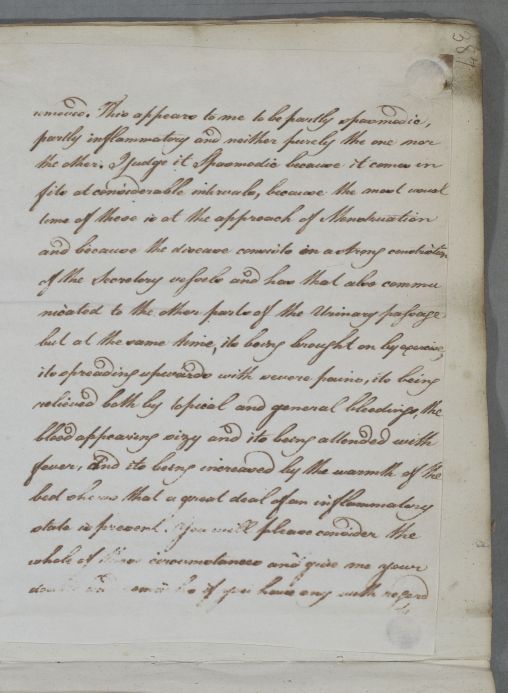 387
removed. This appears to me to be partly spasmodic,
partly inflammatory and neither purely the one nor
the other. I judge it Spasmodic because it comes in
fits at considerable intervals, because the most usual
time of these is at the approach of Menstruation
and because the disease consists in a strong constriction
of the Secretory vessels and has that also commu
nicated to the other parts of the Urinary passage
but at the same time, its being brought on by exercise,
its spreading upwards with severe pains, its being
relieved both by topical and general bleedings, the
blood appearing sizy and its being attended with
fever, and its being increased by the warmth of the
bed shows that a great deal of an inflammatory
state is present. You will please consider the
whole of these circumstances and give me your
doubts and remarks if you have any with regard
to